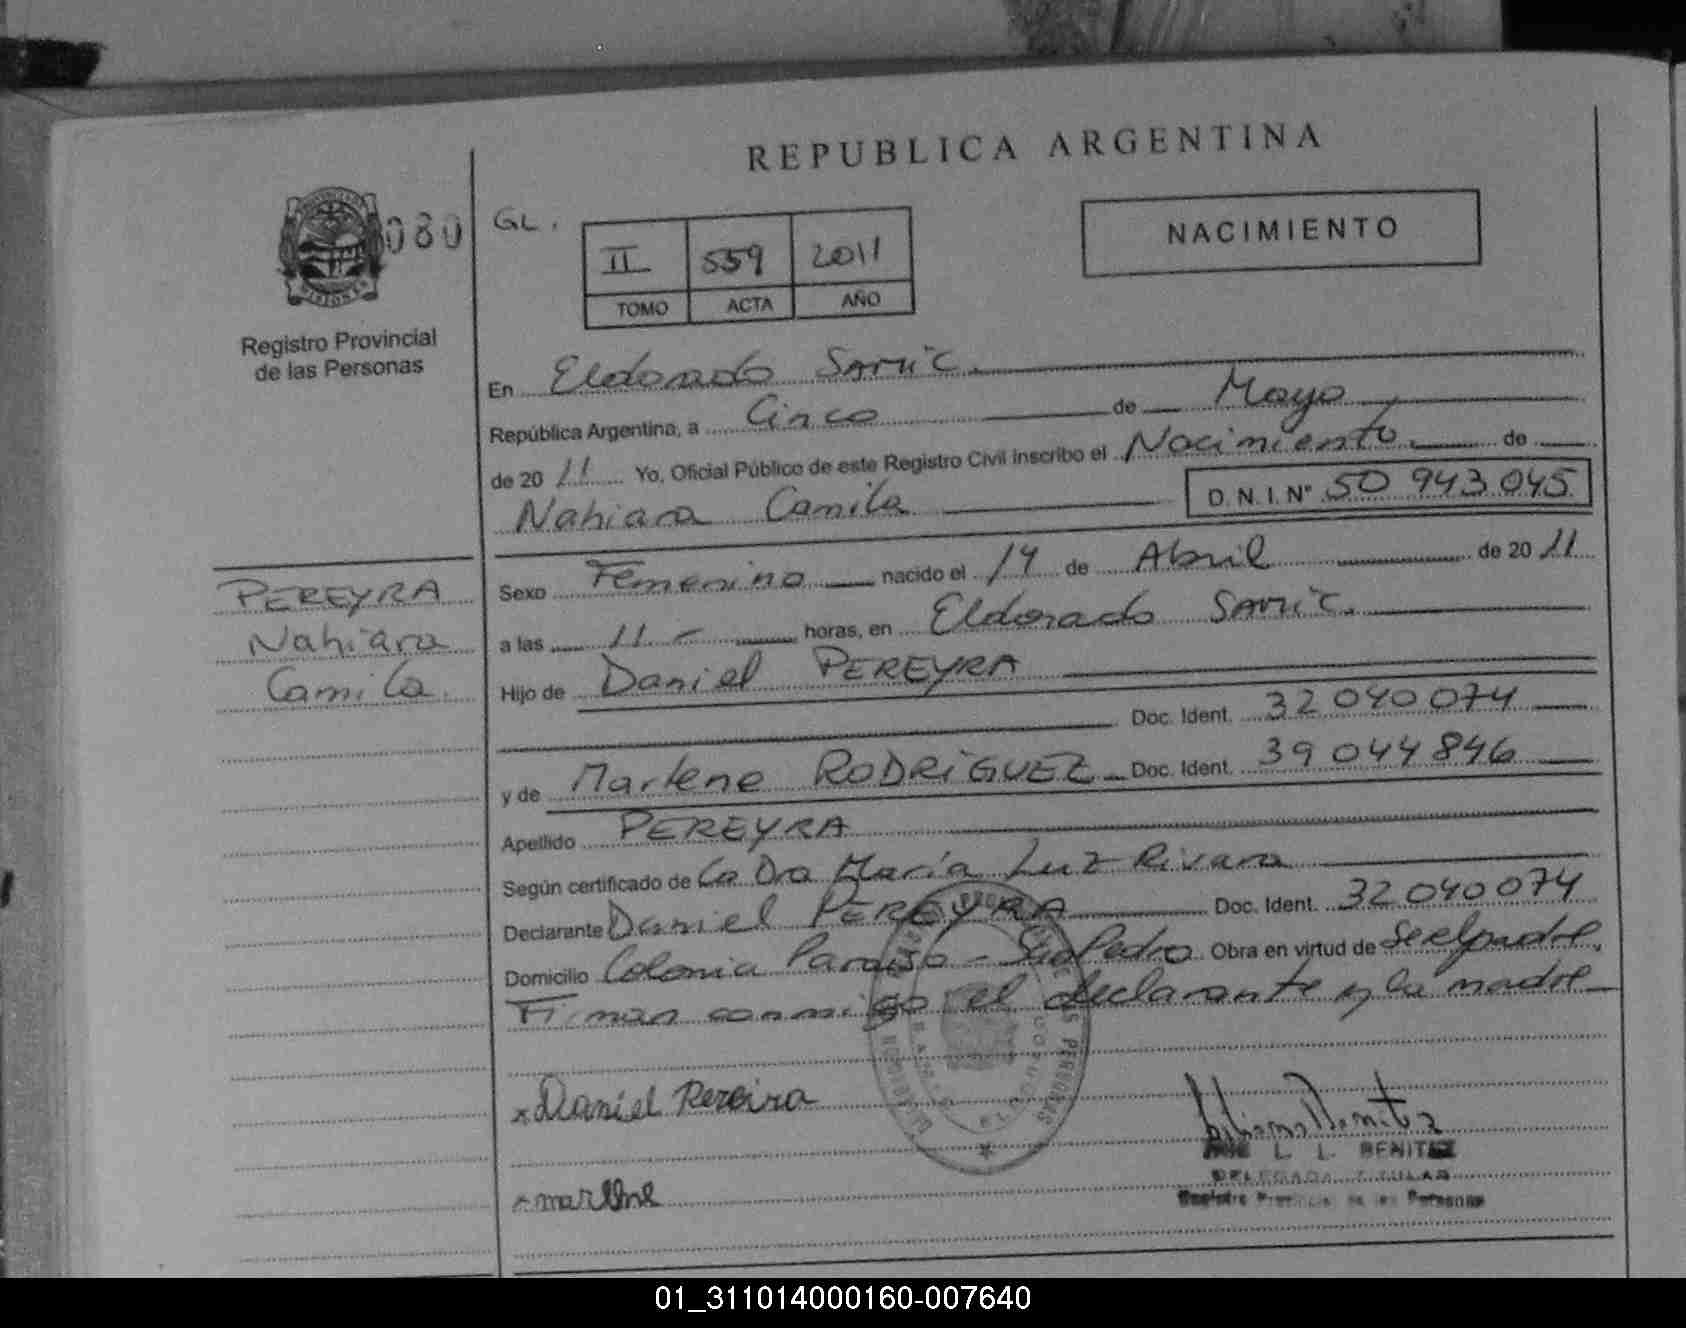 REPUBLICA ARGENTINA
080
GL.
NACIMIENTO
II 559 2011
TOMO ACTA AÑO
Registro Provincial
de las Personas
En Eldorado
República Argentina, a Cinco de Mayo
de 2011 Yo, Oficial Público de este Registro Civil inscribo el Nacimiento de
Nahiara Camila D.N.I. Nº 50 943 045
PEREYRA
Nahiara
Camila.
Sexo Femenino nacido el 14 de Abril de 2011
a las 11 - horas, en Eldorado
Hijo de Daniel PEREYRA
Doc. Ident. 32 040 074
y de Marlene RODRIGUEZ Doc. Ident. 39 044 846
Apellido PEREYRA
Según certificado de La Dra María Luz Rivara
Declarante Daniel PEREYRA Doc. Ident. 32 040 074
Domicilio Colonia Paraiso - Sn Pedro Obra en virtud de Se el padre.
Firman conmigo el declarante y la madre
x Daniel Pereira
L. L. BENITEZ
DELEGADA TITULAR
Registro Provincial de las Personas
x marlene
01_311014000160-007640